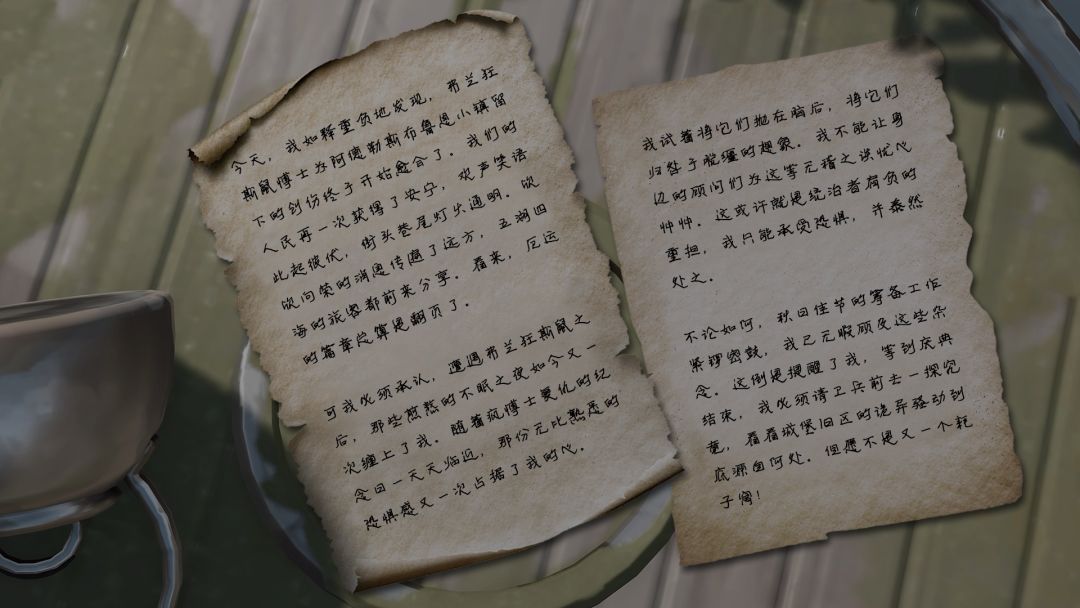 今天，我如释重负地发现，弗兰狂
斯鼠博士为阿德勒斯布鲁恩小镇留
下的创伤终于开始愈合了。我们的
人民再一次获得了安宁，欢声笑语
此起彼伏，街头巷尾灯火通明。欣
欣向荣的消息传遍了远方，五湖四
海的旅客都前来分享。看来，厄运
的篇章总算是翻页了。
可我必须承认，遭遇弗兰狂斯鼠之
后，那些煎熬的不眠之夜如今又一
次缠上了我。随着疯博士复仇的纪
念日一天天临近，那份无比熟悉的
恐惧感又一次占据了我的心。
我试着将它们抛在脑后，将它们
归咎于脱缰的想象。我不能让身
边的顾问们为这等无稽之谈忧心
忡忡。这或许就是统治者肩负的
重担，我只能承受恐惧，并泰然
处之。
不论如何，秋日佳节的筹备工作
紧锣密鼓，我已无暇顾及这些杂
念。这倒是提醒了我，等到庆典
结束，我必须请卫兵前去一探究
竟，看看城堡旧区的诡异骚动到
底源自何处。但愿不是又一个耗
子窝！